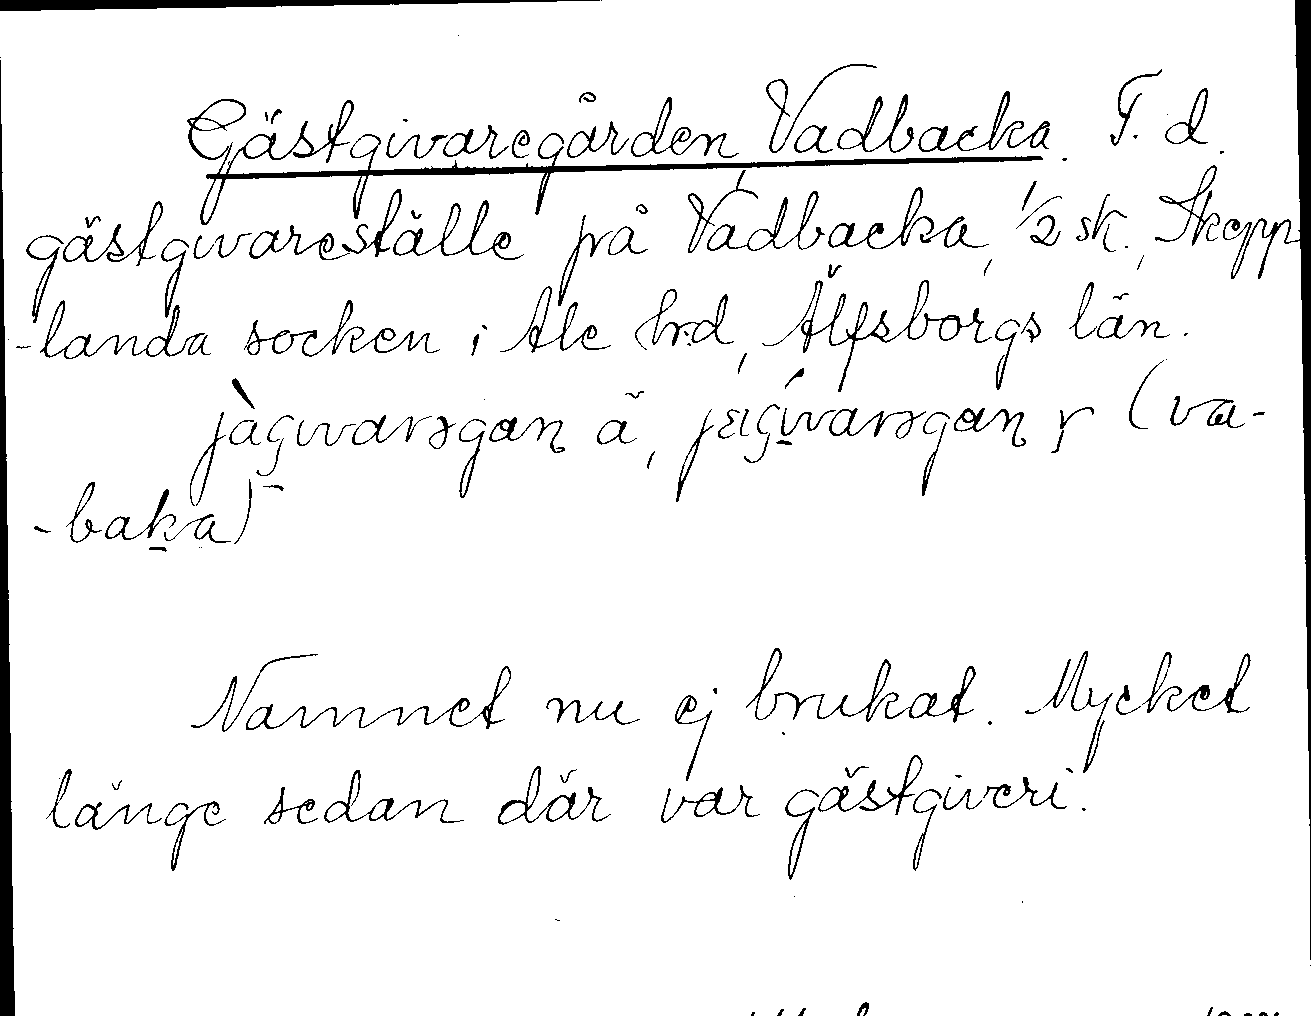 Gästgivaregården, Vadbacka. F. d.
gästgivareställe på Vadbacka, 1/2 sk., Skepp-
-landa socken i Ale hrd, Älfsborgs län.
(va-
-baka)
Namnet nu ej brukat. Mycket
länge sedan där var gästgiveri.